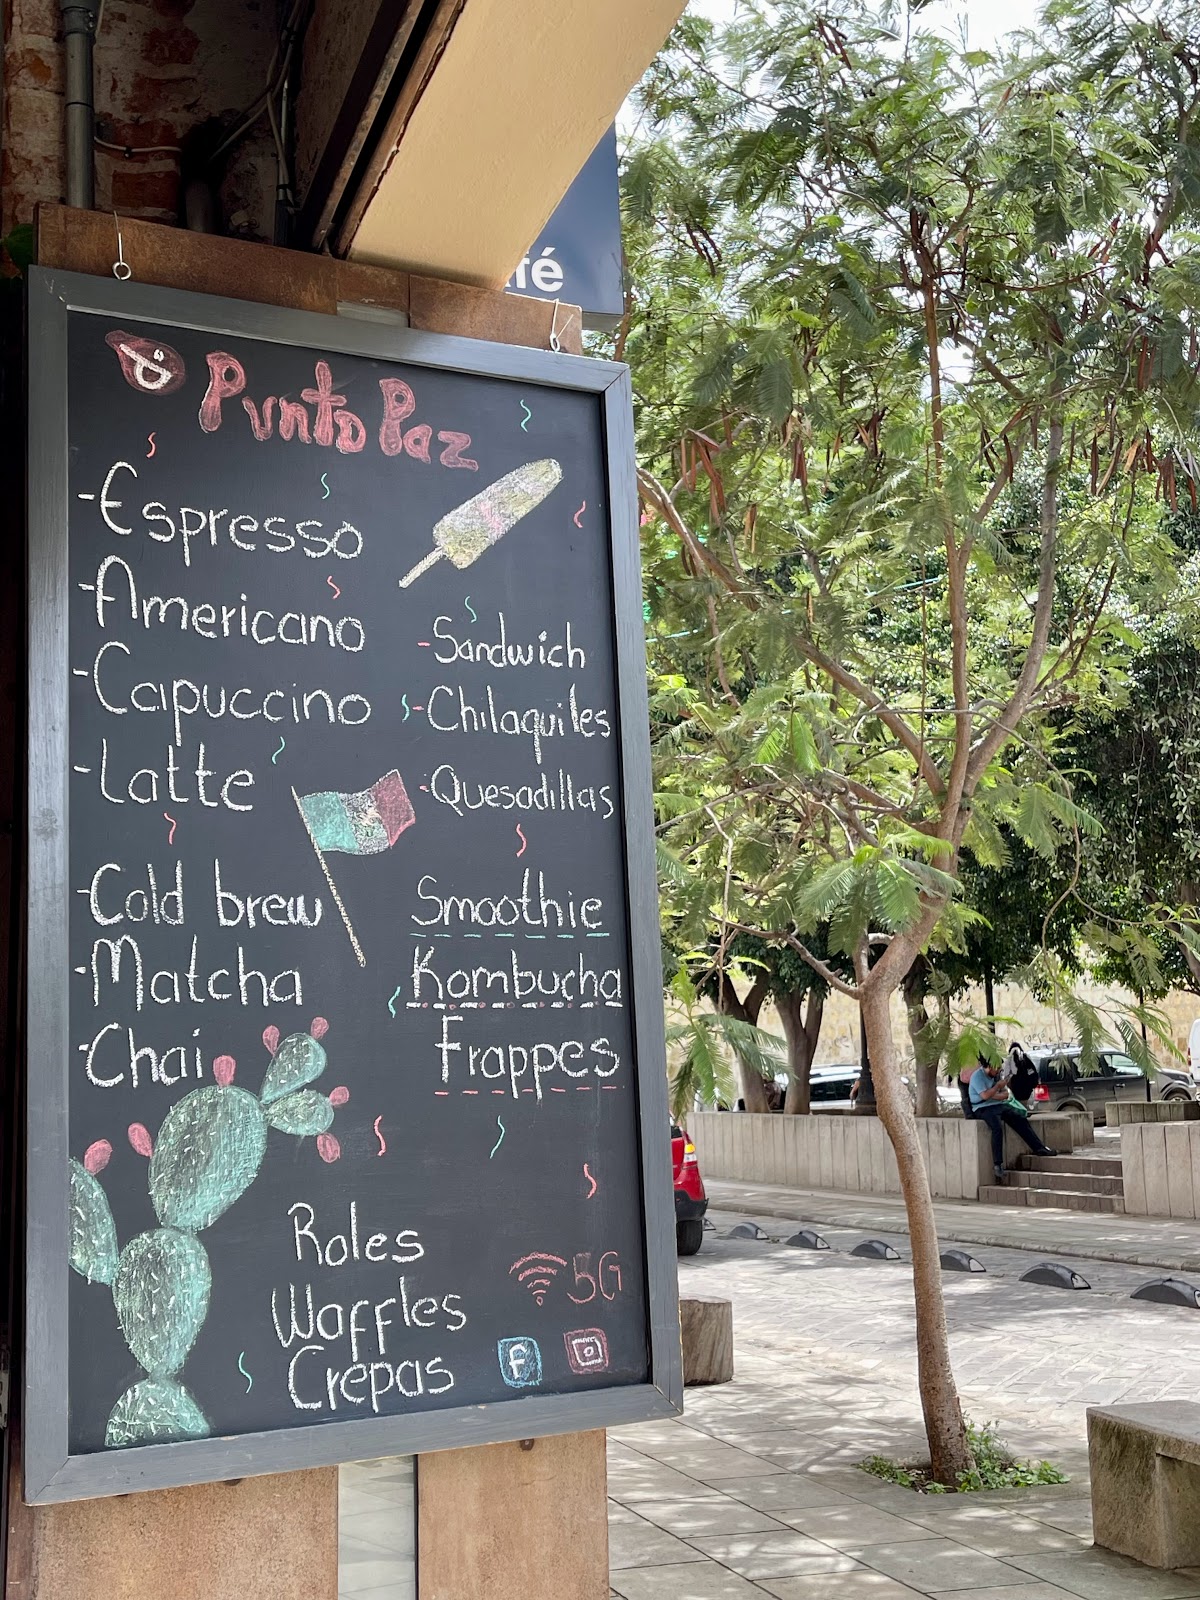 fé
Punto Paz
-Espresso
-Americano
-Capuccino
-Latte
-Cold brew
-Matcha
-Chai
-Sandwich
-Chilaquiles
-Quesadillas
Smoothie
Kombucha
Frappes
Roles
Waffles
Crepas
5G
f